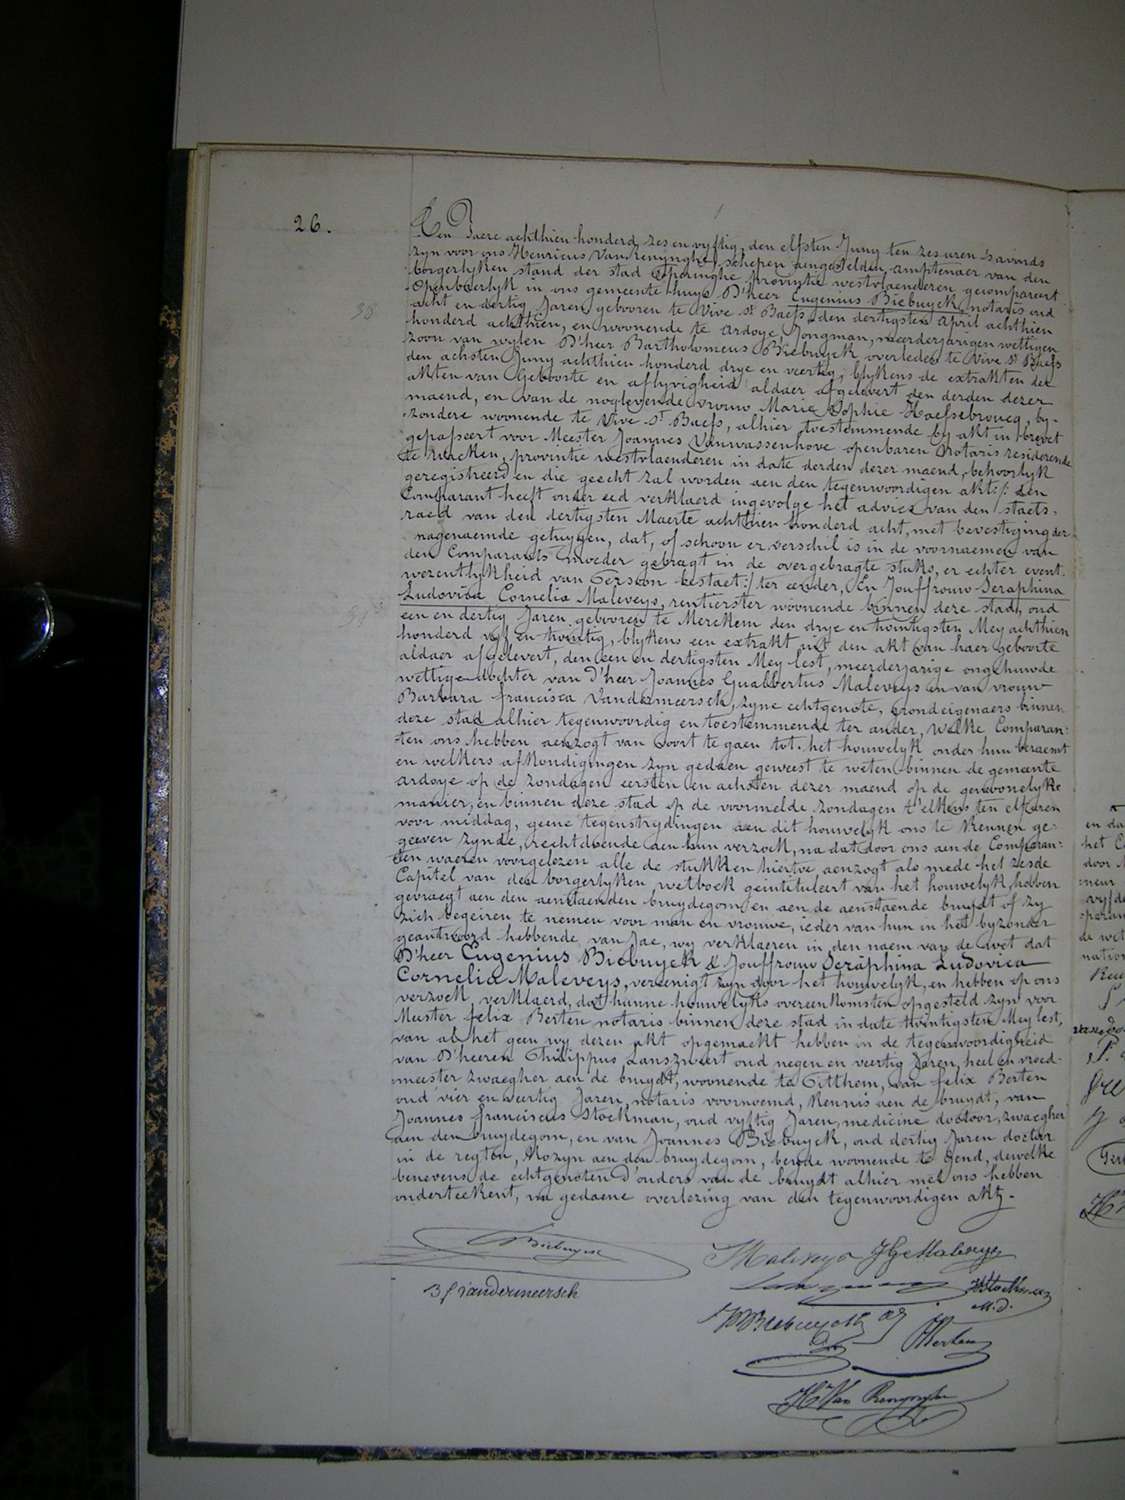 26.
Den Jaere achthien honderd zes en vyftig, den elfsten Juny ten zes uren s'avinds
zyn voor ons Henricus Van Renynghe, schepen aengestelden amptenaer van den
borgerlyken stand der stad Poperinghe provintie westvlaenderen gecompareert
openbaerlyk in ons gemeente huys D'heer Eugenius Biebuyck, notaris oud
acht en dertig Jaren, gebooren te Vive St Baefs, den dertigsten April achthien
38
honderd achthien, en woonende te Ardoye, Jongman, meerderjarigen wettigen
zoon van wylen D'heer Bartholomeus Biebuyck overleden te Vive St Baefs
den achsten Juny achthien honderd drye en veertig, blykens de extrakten der
akten van Geboorte en aflyvigheid aldaer afgelevert den derden dezer
maend, en van de noglevende vrouw Marie Sophie Haesebroucq, by-
zondere woonende te Vive St Baefs, alhier toestemmende by akt in brevet
gepasseert voor Meester Joannes Vanwassenhove openbaren Notaris resideerende
te Wacken, provintie westvlaenderen in date derden dezer maend, behoorlyk
geregistreerd en die geecht zal worden aen den tegenwoordigen akt: den
Comparant heeft onder eed verklaerd ingevolge het advies van den staets-
raed van den dertigsten Maerte achthien honderd acht, met bevestiging der
nagenaemde getuygen, dat, of schoon er verschil is in de voornaemen van
den Comparants moeder gebragt in de overgebragte stuks, er echter event.
wezentlykheid van Persoon bestaet: ter eender, En Jouffrouw Seraphina
Ludovica Cornelia Maleveys, rentierster woonende binnen deze stad, oud
een en dertig Jaren gebooren te Merckem den drye en twintigsten Mey achthien
honderd vyf en twintig, blykens een extrakt uit den akt van haer geboorte
aldaer afgelevert, den een en dertigsten Mey lest, meerderjarige ongehuwde
wettige dochter van D'heer Joannes Gualbertus Maleveys en van vrouw
Barbara francisca Vandermeersch, zyne echtgenote, grondeigenaers binnen
deze stad alhier tegenwoordig en toestemmende ter ander, welke Comparan-
ten ons hebben aenzogt van voort te gaen tot het houwelyk onder hun beraemt
en welkers afkondigingen zyn gedaen geweest te weten binnen de gemeente
Ardoye op de zondagen eersten en achsten dezer maend op de gewoonelyke
manier, en binnen deze stad op de voormelde zondagen t'elkens ten elf uren
voor middag, geene tegenstrydingen aen dit houwelyk ons te kennen ge-
geeven zynde, recht doende aen hun verzoek, na dat door ons aen de Comparan-
ten waeren voorgelezen alle de stukken hiertoe aenzogt als mede het zesde
Capitel van den borgerlyken wetboek geintituleert van het houwelyk, hebben
gevraegt aen den aenstaenden bruydegom en aen de aenstaende bruydt of zy
zich begeiren te nemen voor man en vrouwe, ieder van hun in het byzonder
geantwoord hebbende van Jae, wy verklaeren in den naem van de wet dat
D'heer Eugenius Biebuyck & Jouffrouw Seraphina Ludovica
Cornelia Maleveys, vereenigt zyn door het houwelyk, en hebben op ons
verzoek verklaerd, dat hunne houwelyks overeenkomsten opgesteld zyn voor
Meester felix Berten notaris binnen deze stad in date twintigsten Mey lest,
van al het geen wy dezen akt opgemaekt hebben in de tegenwoordigheid
van D'heeren Philippus Lanszweert oud negen en veertig Jaren, heel en vroed-
meester zwaegher aen de bruydt, woonende te Pitthem, van felix Berten
oud vier en veertig Jaren, notaris voornoemd, kennis aen de bruydt, van
Joannes franciscus Stockman, oud vyftig Jaren, medicine doctoor, zwaegher
aen den bruydegom, en van Joannes Biebuyck, oud dertig Jaren doctor
in de regten, Kozyn aen den bruydegom, beyde woonende te Gend, dewelke
benevens de echtgenoten D'ouders van de bruydt alhier met ons hebben
onderteekent, na gedaene overlezing van den tegenwoordigen akt.
Biebuyck
S Maleveys JG Maleveys
B f vandermeersch
Stockman
M.D.
Biebuyck
F Berten
Hri Van Renynghe